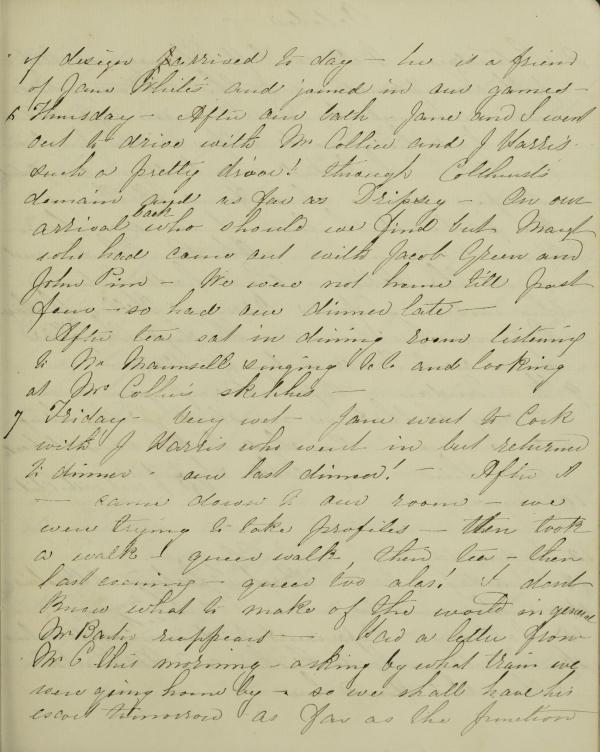 of design arrived to day - he is a friend
of Jane White's and joined in our games -
6 Thursday - After our bath Jane and I went
out to drive with Mr Collier and J Harris.
such a pretty drive! through Colthurst's
domain and as far as Dripsey - On our
arrival back who should we find but Mary
who had come out with Jacob Green and
John Pim - We were not home till past
four - so had our dinner late -
After tea sat in dining room listening
to Mr Maunsell singing &c &c and looking
at Mr Collier's sketches -
7 Friday - Very wet - Jane went to Cork
with J Harris who went in but returned
to dinner - our last dinner! - After it
- came down to our room - we
were trying to take profiles - then took
a walk - queer walk, then tea - then
last evening - queer too alas! I dont
know what to make of the world in general
Mr reappears - Had a letter from
Mr P this morning - asking by what train we
were going home by - so we shall have his
escort tomorrow as far as the Junction